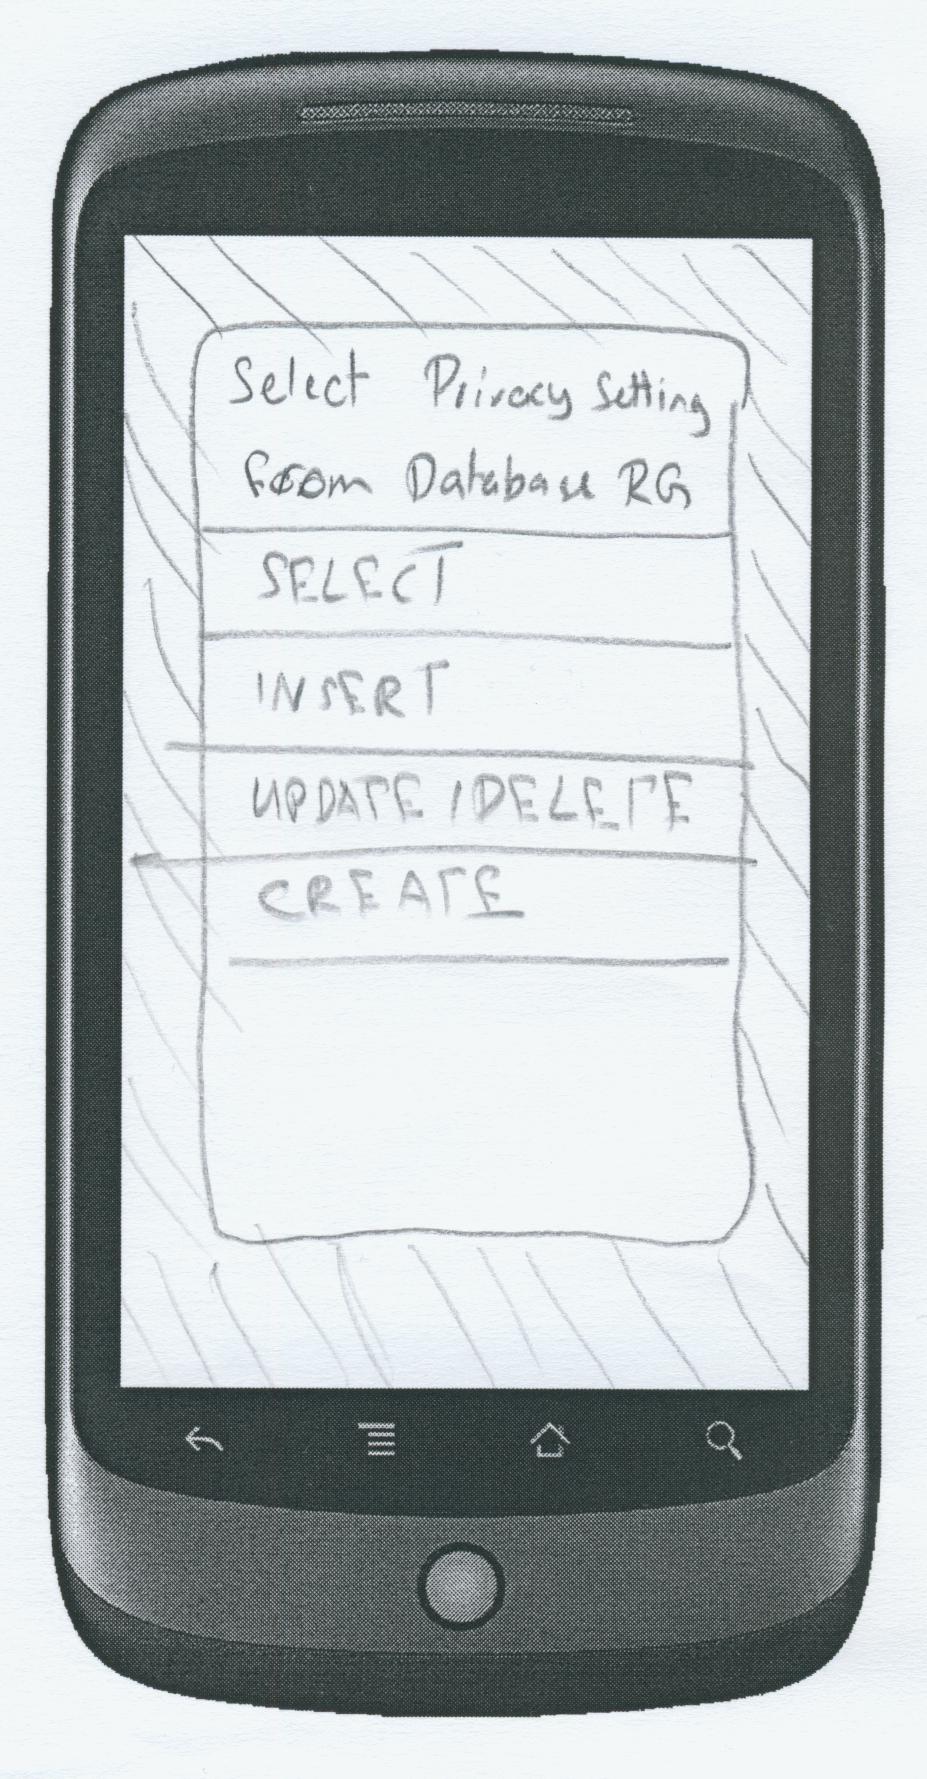 Select Privacy Setting
from Database RG
SELECT
INSERT
UPDATE / DELETE
CREATE